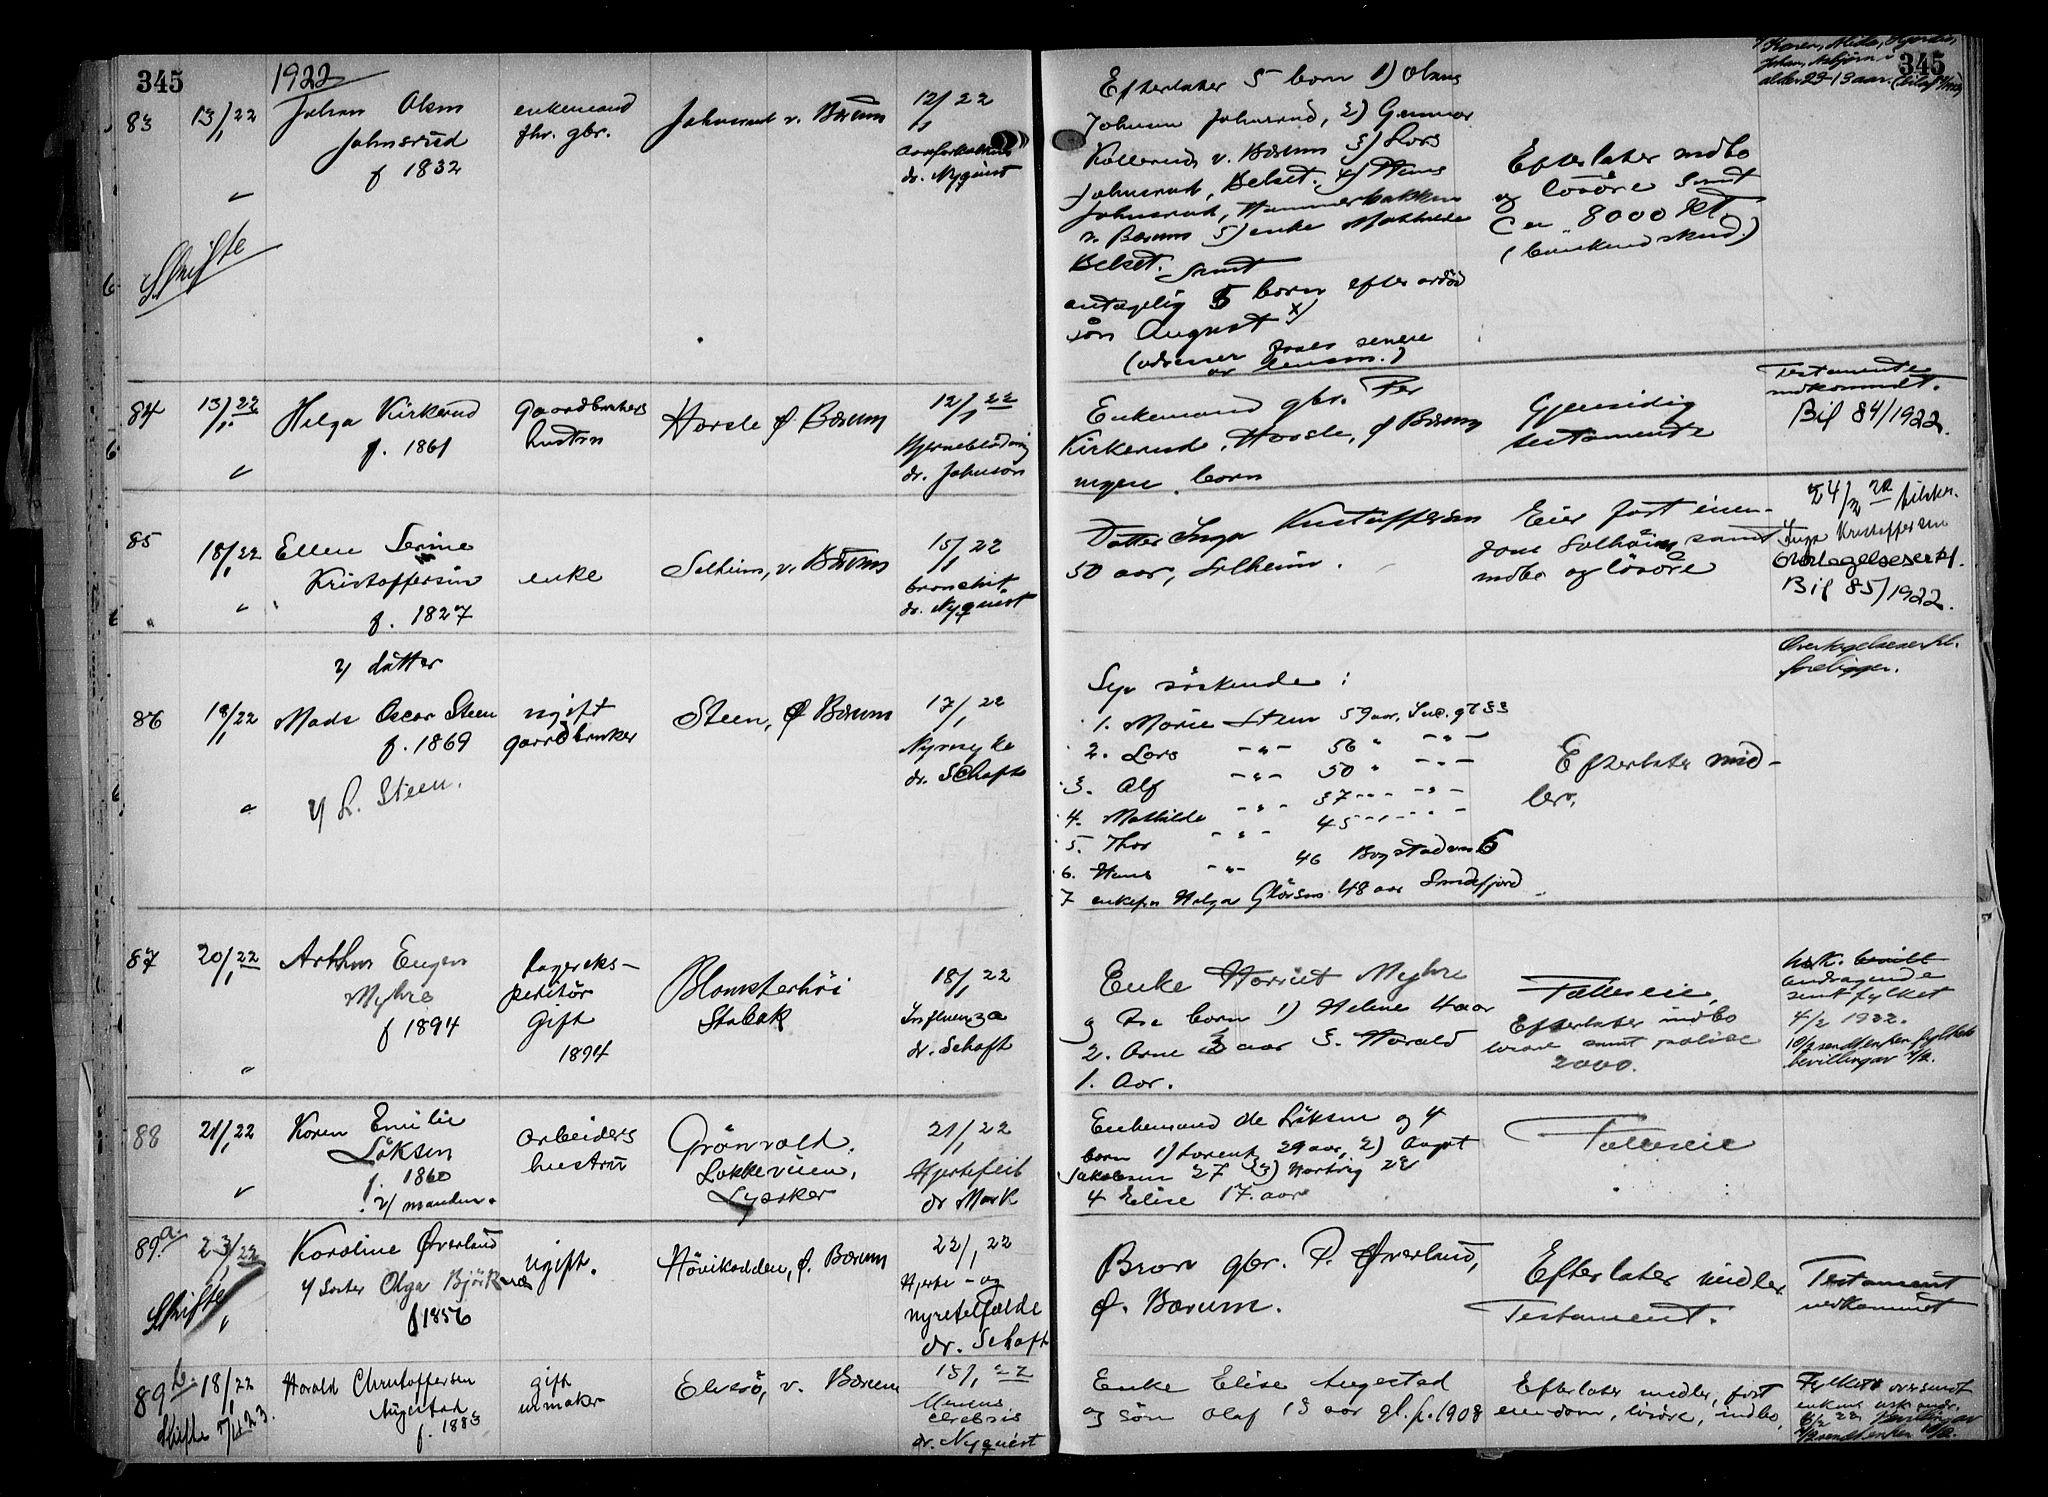 345
1922
83
13/1 22
Johan Olsen
Johnsrud
f 1832
Skifte
enkemand
fhv. gbr.
Johnsrud v. Bærum
12/1 22
dr. Nyquist
Efterlater 5 born 1) Olaus
Johnsen Johnsrud, 2) Gunnar
Kollerud v. Bærum 3) Lars
Johnsrud, Belset. 4) Hans
Johnsrud, Hammerbakken
v. Bærum 5) enke Mathilde
Belset. samt
antagelig 5 born efter avdøde
søn August x)
(adresser senere
av lensm.)
Efterlater indbo
og løsøre samt
Ca 8000 kr.
345
Johan, Asbjørn
alder 23-13 aar.
84
13/1 22
Helga Kirkerud
f. 1861
Gaardbrukers
hustru
Hasle ø Bærum
12/1 22
Hjerneblødning
dr. Johnson
Enkemand gbr. Per
Kirkerud, Hasle, ø Bærum
ingen born
Gjensidig
testamente
Testamente
indkommet.
Bil 84/1922.
85
18/1 22
Ellen Serine
Kristoffersen
f. 1827
v/ datter
enke
Solheim, v. Bærum
15/1 22
bronchit
dr. Nyquist
Datter Inga Kristoffersen
50 aar, Solheim.
Eier fast eien-
dom Solheim samt
indbo og løsøre
24/2 22
Inga Kristoffersen
Overtagelseserkl.
Bil 85/1922.
86
19/1 22
Mads Oscar Steen
f. 1869
v/ L. Steen.
ugift
gaardbruker
Steen, Ø Bærum
17/1 22
Nyresyke
dr. Schaft
Syv søskende:
1. Marie Steen 59 aar,
2. Lars -"- 56 " -"-
3. Alf -"- 50 " -"-
4. Mathilde -"- 37 -"- -"-
5. Thor -"- 45 -"- -"-
6. Hans -"- 46 Bogstadvn 6
7 enkefru Helga 48 aar Sandefjord
Efterlater mid-
ler.
Overtagelseserkl.
foreligger.
87
20/1 22
Arthur Eugen
Myhre
f 1894
lagereks-
peditør
Gift
1894
Blomsterhøi
Stabæk
18/1 22
Influenza
dr. Schaft
Enke Harriet Myhre
og tre born 1) Helene 4 aar
2. Arne 3 aar 3. Harald
1. Aar.
Fælleseie,
Efterlater indbo
løsøre samt polise
2000.
andragende
sendt fylket
4/2 1922.
88
21/1 22
Karen Emilie
Løksen
f. 1860
v/ manden
arbeiders
hustru
Grönvold,
Lakkeveien,
Lysaker
21/1 22
Hjertefeil
dr Mark
Enkemand Ole Løksen og 4
born 1) Laurentz 29 aar, 2) August
Jakobsen 27 3) Hartvig 22
4 Elise 17 aar
Fælleseie
89a.
23/1 22
Skifte
Karoline Øverland
v/ søster Olga Bjørknes
f 1856
ugift.
Høvikodden, ø. Bærum
22/1 22
Hjerte- og
nyretilfælde
dr. Schaft
Bror gbr. P. Øverland,
ø. Bærum.
Efterlater midler
Testament.
Testament
indkommet
89b.
18/1 22
Skifte
Harald Christoffersen
Augestad
f. 1883
gift
urmaker
Elvesø, v. Bærum
15/1 22
dr. Nyquist
Enke Elise Augestad
og søn Olaf 13 aar gl. f. 1908
Efterlater midler, fast
eiendom, løsøre, indbo,